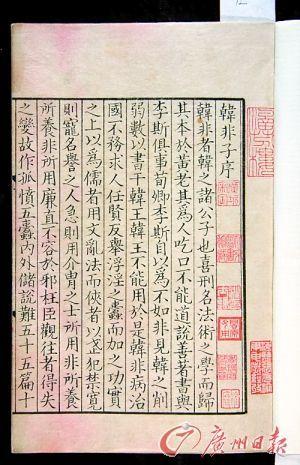 韓非子序
韓非者韓之諸公子也喜刑名法術之學而歸
其本於黃老其爲人吃口不能道說善著書與
李斯俱事荀卿李斯自以爲不如非見韓之削
弱數以書干韓王韓王不能用於是韓非病治
國不務求人任賢反舉浮淫之蠹而加之功實
之上以爲儒者用文亂法而俠者以武犯禁寬
則寵名譽之人急則用介胄之士所用非所養
所養非所用廉直不容於邪枉臣觀往者得失
之變故作孤憤五蠹內外儲說難五十五篇十
廣州日報